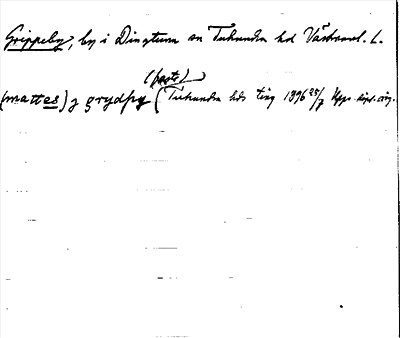 Grippeby, by i Dingtuna sn Tuhundra hd Västmanl. L.
(fasta)
(mattes) j grydþby (Tuhundra hds ting 1396 25/7 Upps. dipl. orig.